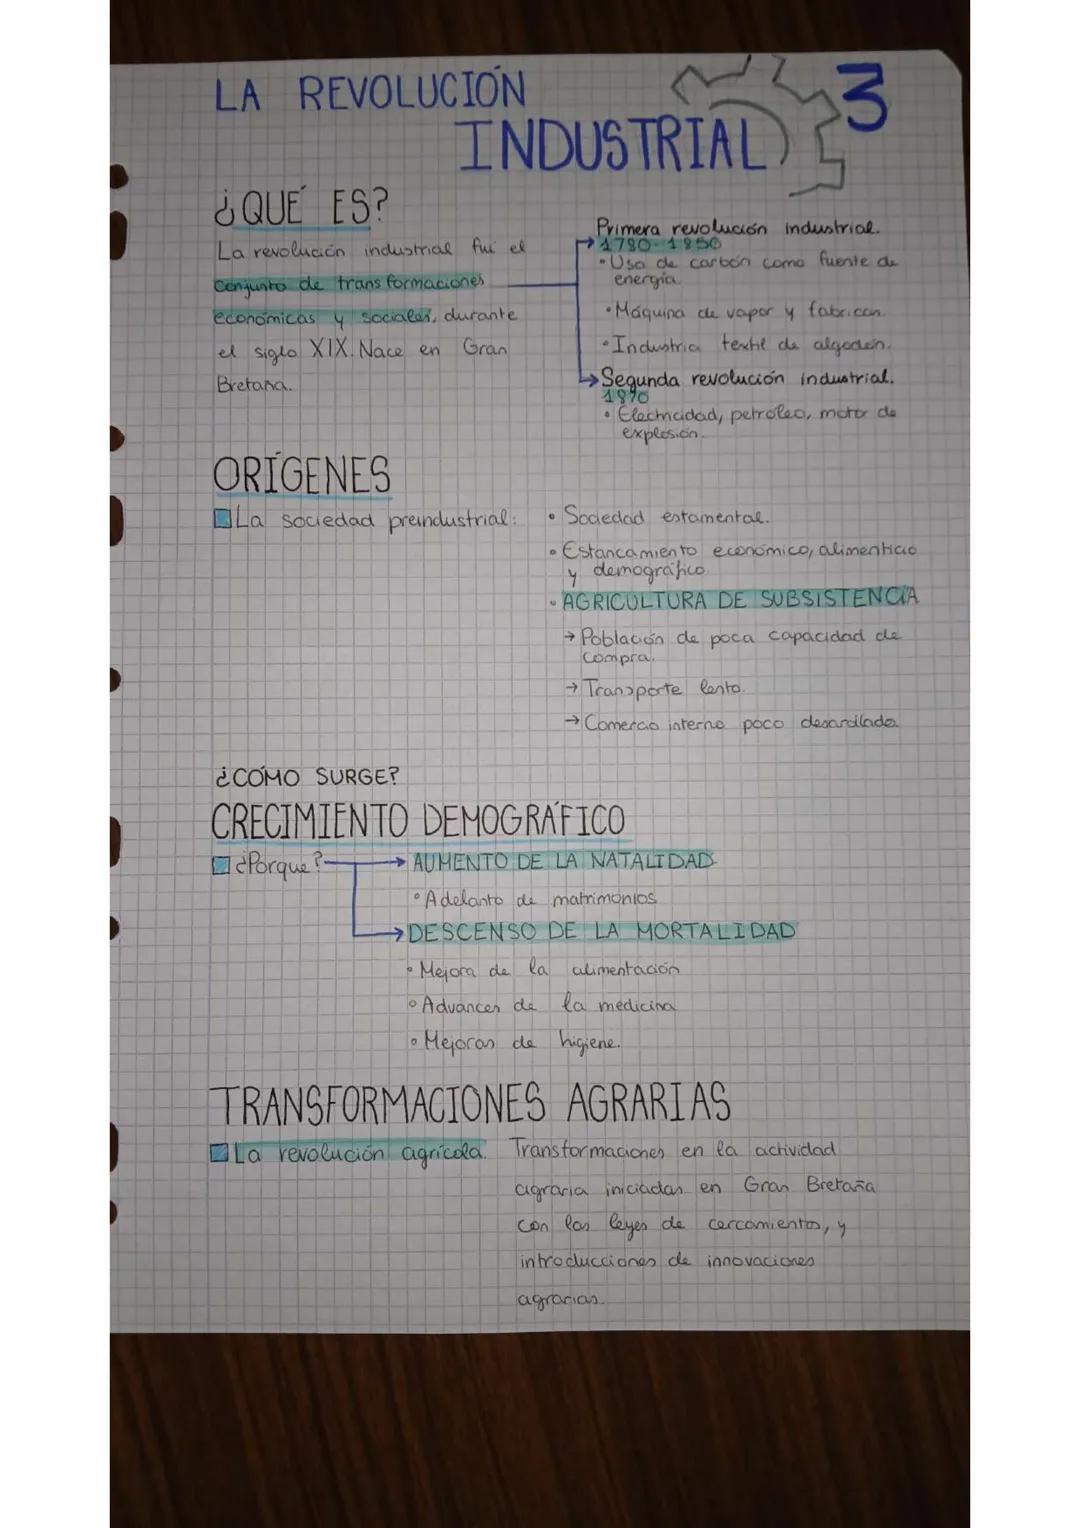 LA REVOLUCIÓN
INDUSTRIAL
3
¿QUÉ ES?
La revolución industrial fui el
conjunto de transformaciones
económicas y sociales, durante
el siglo XIX. Nace en Gran
Bretaña.
Primera revolución industrial.
1780-1850
• Uso de carbón como fuente de
energía.
• Máquina de vapor y fabricas.
• Industria textil de algodón.
Segunda revolución industrial.
1870
• Electricidad, petróleo, motor de
explosión.
ORÍGENES
La sociedad preindustrial:
• Sociedad estamental.
• Estancamiento económico, alimenticio
y demográfico.
• AGRICULTURA DE SUBSISTENCIA
→ Población de poca capacidad de
compra.
→ Transporte lento.
→ Comercio interno poco desarollado.
¿CÓMO SURGE?
CRECIMIENTO DEMOGRÁFICO
¿Porque?
→ AUMENTO DE LA NATALIDAD
• Adelanto de matrimonios
→ DESCENSO DE LA MORTALIDAD
• Mejora de la alimentación
• Advances de la medicina
• Mejoras de higiene.
TRANSFORMACIONES AGRARIAS
La revolución agrícola. Transformaciones en la actividad
agraria iniciadas en Gran Bretaña
con las leyes de cercamientos, y
introducciones de innovaciones
agrarias.